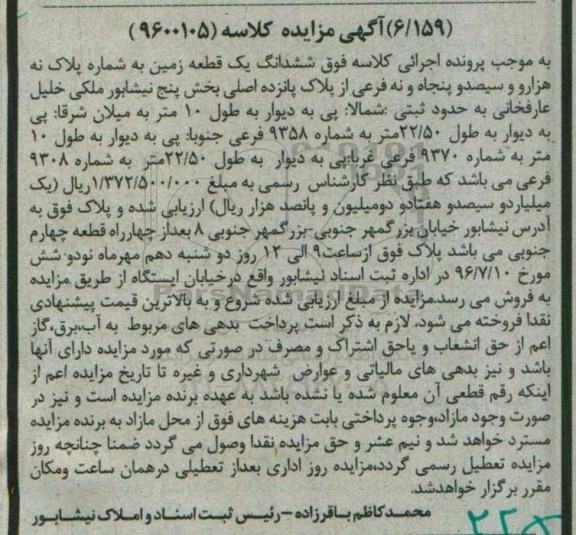 (۶/۱۵۹)آگهی مزایده کلاسه (۹۶۰۰۱۰۵)
به موجب پرونده اجرائی کلاسه فوق ششدانگ یک قطعه زمین به شماره پلاک نه
هزارو و سیصدو پنجاه و نه فرعی از پلاک پانزده اصلی بخش پنج نیشابور ملکی خلیل
عارفخانی به حدود ثبتی :شمالا: پی به دیوار به طول ۱۰ متر به میلان شرقا: پی
به دیوار به طول ۲۲/۵۰متر به شماره ۹۳۵۸ فرعی جنوبا: پی به دیوار به طول ۱۰
متر به شماره ۹۳۷۰ فرعی غربا:پی به دیوار به طول ۲۲/۵۰متر به شماره ۹۳۰۸
فرعی می باشد که طبق نظر کارشناس رسمی به مبلغ ۱/۳۷۲/۵۰۰/۰۰۰ریال (یک
میلیاردو سیصدو هفتادو دومیلیون و پانصد هزار ریال) ارزیابی شده و پلاک فوق به
آدرس نیشابور خیابان بزرگمهر جنوبی-بزرگمهر جنوبی ۸ بعداز چهارراه قطعه چهارم
جنوبی می باشد پلاک فوق ازساعت۹ الی ۱۲ روز دو شنبه دهم مهرماه نودو شش
مورخ ۹۶/۷/۱۰ در اداره ثبت اسناد نیشابور واقع درخیابان ایستگاه از طریق مزایده
به فروش می رسد.مزایده از مبلغ ارزیابی شده شروع و به بالاترین قیمت پیشنهادی
نقدا فروخته می شود. لازم به ذکر است پرداخت بدهی های مربوط به آب،برق،گاز
اعم از حق انشعاب و یاحق اشتراک و مصرف در صورتی که مورد مزایده دارای آنها
باشد و نیز بدهی های مالیاتی و عوارض شهرداری و غیره تا تاریخ مزایده اعم از
اینکه رقم قطعی آن معلوم شده یا نشده باشد به عهده برنده مزایده است و نیز در
صورت وجود مازاد،وجوه پرداختی بابت هزینه های فوق از محل مازاد به برنده مزایده
مسترد خواهد شد و نیم عشر و حق مزایده نقدا وصول می گردد ضمنا چنانچه روز
مزایده تعطیل رسمی گردد،مزایده روز اداری بعداز تعطیلی درهمان ساعت ومکان
مقرر برگزار خواهدشد.
محمدکاظم باقرزاده –رئیس ثبت اسناد و املاک نیشابور